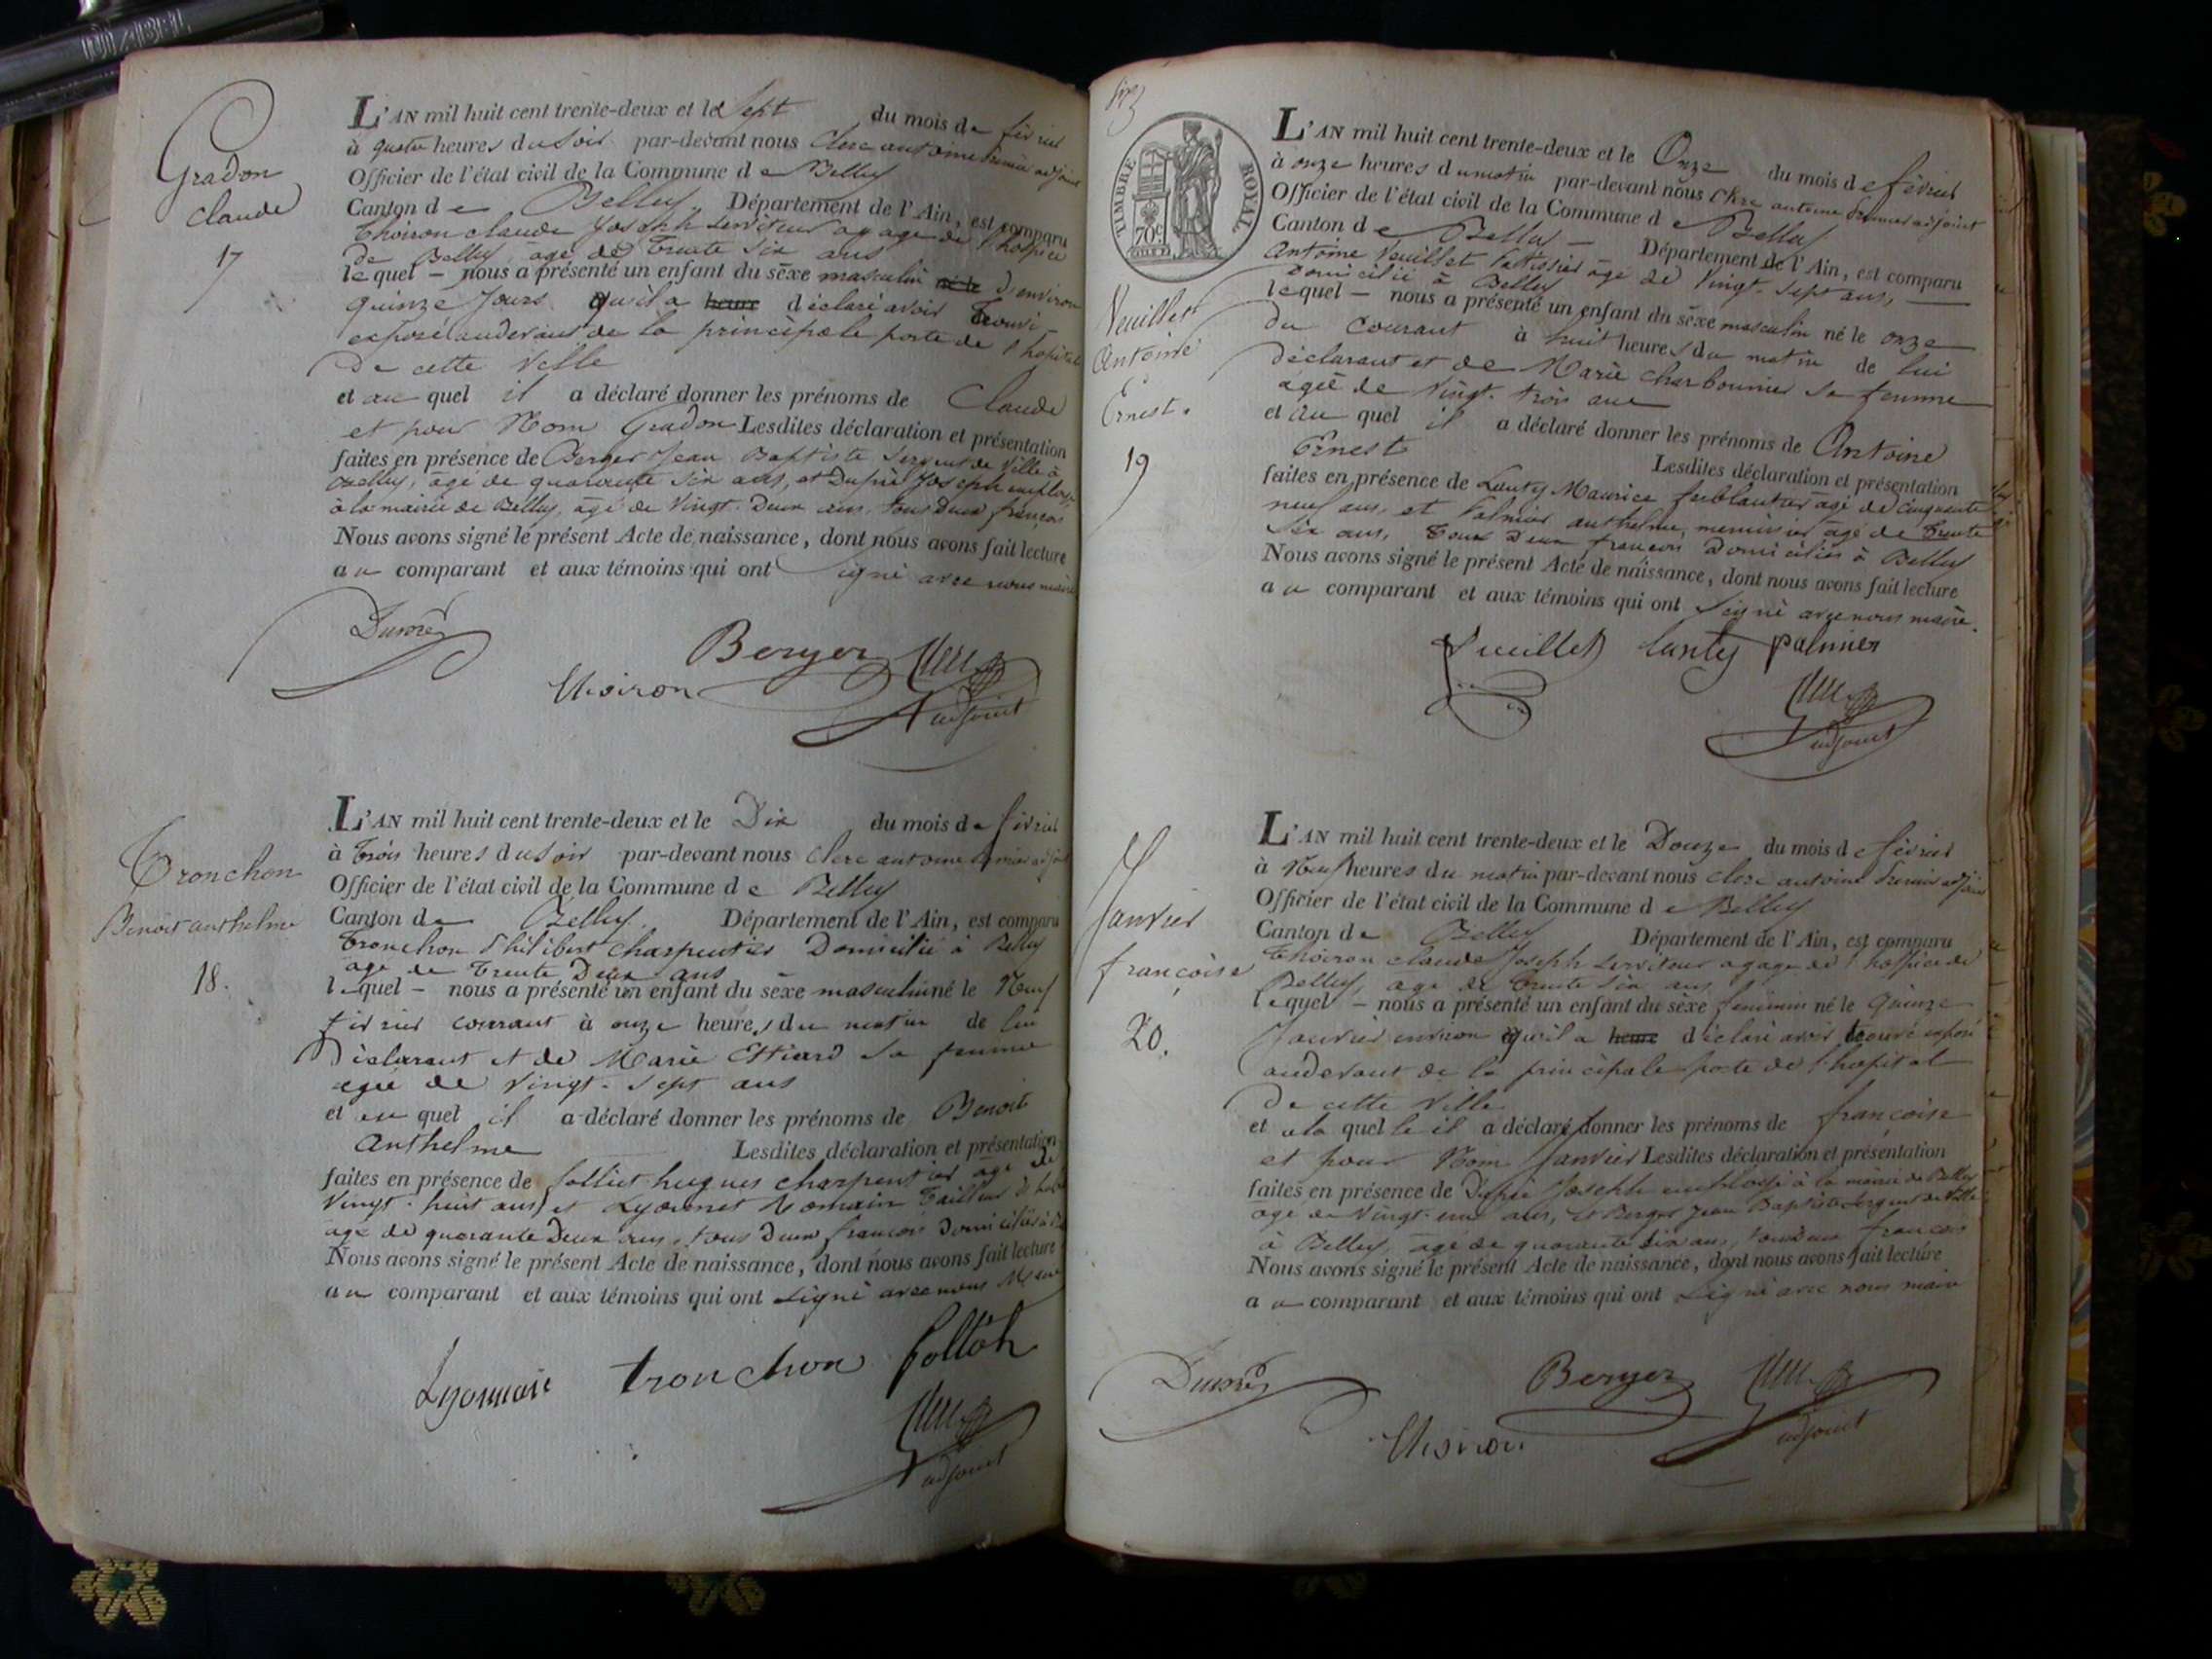 Gradon
Claude
17
L'AN mil huit cent trente-deux et le Sept du mois de février
à quatre heures du soir par-devant nous Clerc antoine premier adjoint
Officier de l'état civil de la Commune de Belley
Canton de Belley Département de l'Ain, est comparu
Thoiron claude Joseph serviteur a gage de l'hospice
de Belley, agé de Trente Six ans
lequel - nous a présenté un enfant du sèxe masculin né le D'environ
quinze Jours qu'il a heure déclaré avoir trouvé
exposé audevant de la principale porte de l'hopital
De cette Ville
et au quel il a déclaré donner les prénoms de Claude
et pour Nom Gradon Lesdites déclaration et présentation
faites en présence de Berger Jean Baptiste Sergent de Ville à
Belley, agé de quarante Six ans, et Dupré Joseph employé
à la mairie de Belley, agé de Vingt Deux ans, tous Deux françois
Nous avons signé le présent Acte de naissance, dont nous avons fait lecture
au comparant et aux témoins qui ont signé avec nous maire
Dupré
Berger Clerc
Thoiron
adjoint
Tronchon
Benoit anthelme
18.
L'AN mil huit cent trente-deux et le Dix du mois de février
à Trois heures du soir par-devant nous Clerc antoine premier adjoint
Officier de l'état civil de la Commune de Belley
Canton de Belley. Département de l'Ain, est comparu
Tronchon Philibert charpentier Domicilié à Belley
agé de Trente Deux ans
lequel - nous a présenté un enfant du sèxe masculin né le Neuf
février courant à onze heures du matin de lui
Déclarant et de Marie sa femme
agée de Vingt-Sept ans
et au quel il a déclaré donner les prénoms de Benoit
Anthelme Lesdites déclaration et présentation
faites en présence de hugues charpentier agé de
Vingt-huit ans, et Romain Tailleur
agé de quarante Deux ans, tous Deux françois Domiciliés à
Nous avons signé le présent Acte de naissance, dont nous avons fait lecture
au comparant et aux témoins qui ont signé avec nous Maire
tronchon
Clerc
adjoint
TIMBRE ROYAL
70c.
Veuillet
Antoine
Ernest.
19
L'AN mil huit cent trente-deux et le Onze du mois de février
à onze heures du matin par-devant nous Clerc antoine premier adjoint
Officier de l'état civil de la Commune de Belley
Canton de Belley - Département de l'Ain, est comparu
Antoine Veuillet Patissier âgé de Vingt-Sept ans,
Domicilié à Belley
lequel - nous a présenté un enfant du sèxe masculin né le onze
du courant à huit heures du matin de lui
déclarant et de Marie Charbonnier sa femme
agée de Vingt-trois ans
et au quel il a déclaré donner les prénoms de Antoine
Ernest Lesdites déclaration et présentation
faites en présence de Lanty Maurice ferblantier agé de cinquante
neuf ans, et Palmier anthelme, menuisier agé de Trente
Six ans, tous Deux françois Domiciliés à Belley
Nous avons signé le présent Acte de naissance, dont nous avons fait lecture
au comparant et aux témoins qui ont signé avec nous maire.
Veuillet Lanty palmier
Clerc
adjoint
Janvier
françoise
20.
L'AN mil huit cent trente-deux et le Douze du mois de février
à Neuf heures du matin par-devant nous Clerc antoine premier adjoint
Officier de l'état civil de la Commune de Belley
Canton de Belley Département de l'Ain, est comparu
Thoiron claude Joseph serviteur a gage de l'hospice de
Belley, agé de Trente Six ans
lequel - nous a présenté un enfant du sèxe féminin né le quinze
Janvier environ qu'il a heure déclaré avoir trouvé exposé
audevant de la principale porte de l'hopital
De cette Ville
et a la quelle il a déclaré donner les prénoms de françoise
et pour Nom Janvier Lesdites déclaration et présentation
faites en présence de Dupré Joseph employé à la mairie de Belley
agé de Vingt-un ans, et Berger Jean Baptiste Sergent de Ville
à Belley, agé de quarante Six ans, tous Deux françois
Nous avons signé le présent Acte de naissance, dont nous avons fait lecture
au comparant et aux témoins qui ont signé avec nous maire
Dupré Berger Clerc
Thoiron adjoint